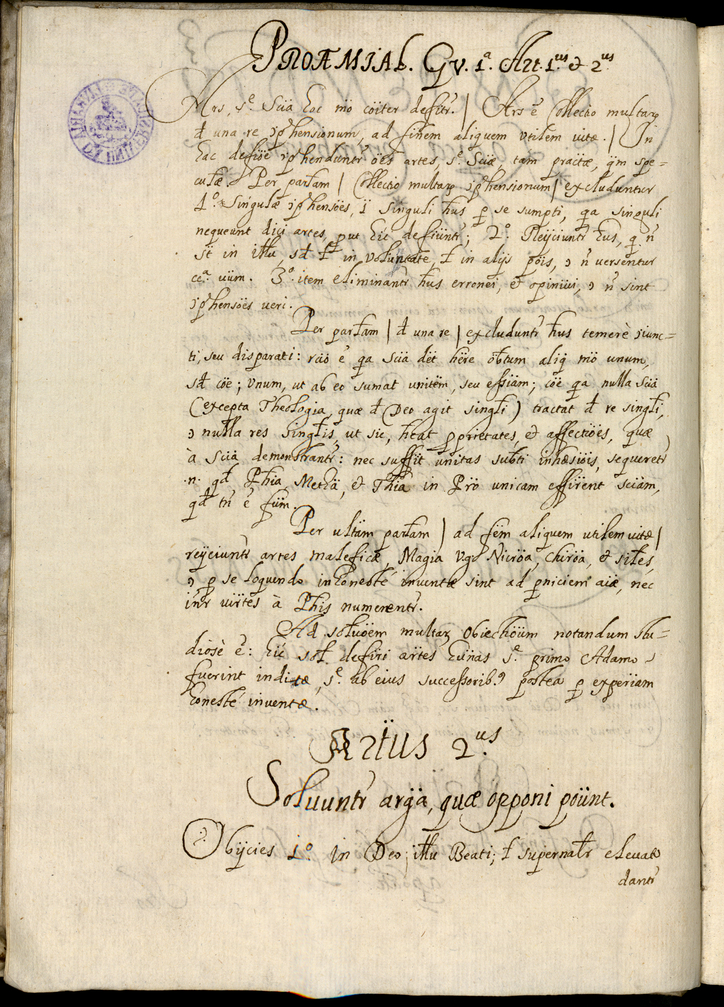 PROÆMIAL. Qv. 1ª. Art. 1us & 2us
Ars, sc Scia hac mo coiter defitr. | Ars e Collectio multar
d una re cpphensionum, ad finem aliquem vtilem vitæ. | In
hac defiöe cpphenduntr oes artes, sc Sciæ tam practæ, qm spe=
culæ. Per partam | Collectio multar cpphensionum | excluduntur
1º. Singulæ cpphensöes, i singuli hus p se sumpti, qa singuli
nequeunt dici artes, put hic defiuntr; 2º. Reijciuntr hus, q n
st in ittu, sd t in voluntate t in alijs pöis, n versentur
ca. uum. 3º. item eliminantr hus erronei, & opinivi, n sint
cpphensöes veri.
Per partam | d una re | excluduntr hus temerè iunc=
ti, seu disparati: raö e qa scia det hère obtum aliq mo unum,
sd cöe; vnum, ut ab eo sumat unitem, seu essiam; cöe qa nulla scia
(excepta Theologia, quæ d Deo agit singli) tractat d re singli,
nulla res singlis, ut sic, heat pprietates, & affectiöes, quæ
à scia demonstrantr: nec suffit unitas subti inhæsiöis, sequeretr
.n. qd Phia Metia, & Thia in Pro unicam efficrent sciam,
qd tn e fsm.
Per ultam partam | ad fem aliquem utilem vitæ |
reijciuntr artes maleficæ, Magia vgr Nicröa, Chiröa, & siles,
p se loquendo inhonestè inventæ sint ad pniciem aiæ, nec
intr virtes à Phis numerentr.
Ad solvöem multar obiectiöum notandum stu=
diosè e: hic sol defiri artes hunas sc primo Adamo
fuerint inditæ, sc ab eius successoribs postea p experiam
honestè inventæ.
Artius 2us.
Solvuntr argta, quæ opponi poünt.
Obijcies 1º. in Deo, ittu Beati, t supernatr elevato
dantr